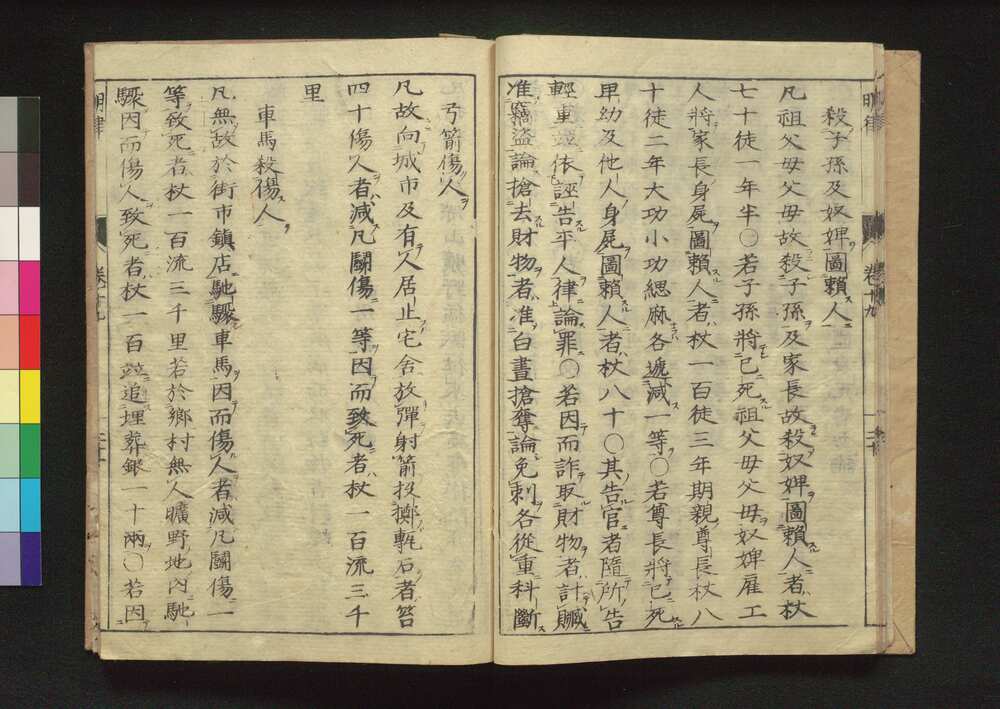 殺子孫及奴婢圖賴人
凡祖父母父母故殺子孫及家長故殺奴婢圖賴人者杖
七十徒一年半〇若子孫將已死祖父母父母奴婢雇工
人將家長身屍圖賴人者杖一百徒三年期親尊長杖八
十徒二年大功小功緦麻各遞減一等〇若尊長將已死
卑幼及他人身屍圖賴人者杖八十〇其告官者隨所告
輕重並依誣告平人律論罪〇若因而詐取財物者計贓
准竊盜論搶去財物者准白晝搶奪論免刺各從重科斷
弓箭傷人
凡故向城市及有人居止宅舍放彈射箭投擲甎石者笞
四十傷人者減凡鬭傷一等因而致死者杖一百流三千
里
車馬殺傷人
凡無故於街市鎮店馳驟車馬因而傷人者減凡鬭傷一
等致死者杖一百流三千里若於鄉村無人曠野地內馳
驟因而傷人致死者杖一百並追埋葬銀一十兩〇若因
明律
卷十九